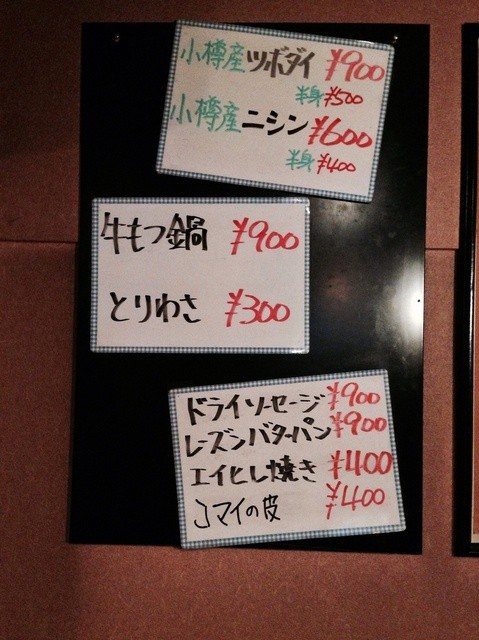 小樽産ツボダイ ¥900
半身¥500
小樽産ニシン ¥600
半身¥400
牛もつ鍋 ¥900
とりわさ ¥300
ドライソーセージ ¥900
レーズンバターパン ¥900
エイヒレ焼き ¥400
コマイの皮 ¥400